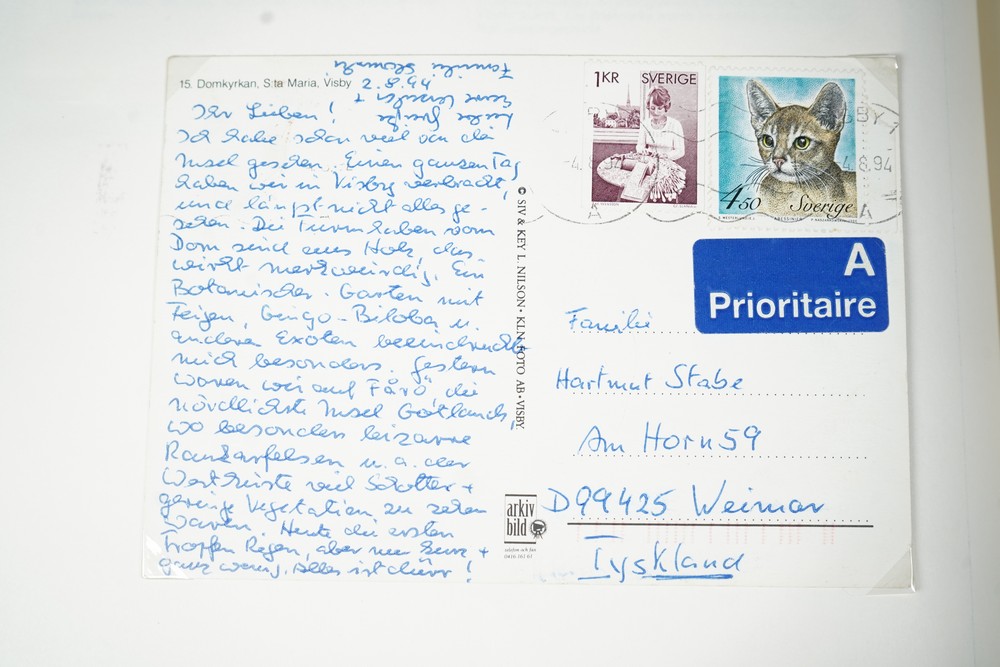 15. Domkyrkan, S:ta Maria, Visby
2.8.94
Ihr Lieben!
Ich habe schon viel von der
Insel gesehen. Einen ganzen Tag
haben wir in Visby verbracht,
und längst nicht alles ge-
sehen. Die Turmhauben vom
Dom sind aus Holz, das
wirkt merkwürdig. Ein
Botanischer Garten mit
Feigen, Gingo-Biloba u.
anderen Exoten beeindruckte
mich besonders. Gestern
waren wir auf Fårö, die
nördlichste Insel Gotlands,
wo besonders bizarre
Raukarfelsen u. a. der
Westküste viel Schotter +
geringe Vegetation zu sehen
waren. Heute die ersten
Tropfen Regen, aber nur kurz +
ganz wenig, alles ist dürr!
Familie
© SIV & KEY L. NILSON • KLN FOTO AB • VISBY
arkiv
bild
1KR SVERIGE
4.50 Sverige
ABESSINIER
4.8.94
A
Prioritaire
Familie
Hartmut Stabe
Am Horn 59
D 99425 Weimar
Tyskland